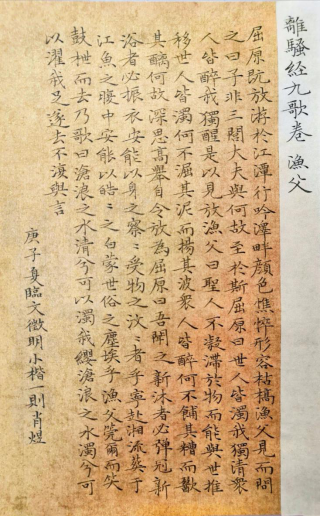 離騷經九歌卷 漁父
屈原既放游於江潭行吟澤畔顏色憔悴形容枯槁漁父見而問
之曰子非三閭大夫與何故至於斯屈原曰世人皆濁我獨清衆
人皆醉我獨醒是以見放漁父曰聖人不凝滯於物而能與世推
移世人皆濁何不淈其泥而揚其波衆人皆醉何不餔其糟而歠
其醨何故深思高舉自令放為屈原曰吾聞之新沐者必彈冠新
浴者必振衣安能以身之察〻受物之汶〻者乎寧赴湘流葬于
江魚之腹中安能以皓〻之白蒙世俗之塵埃乎漁父莞爾而笑
鼓枻而去乃歌曰滄浪之水清兮可以濯我纓滄浪之水濁兮可
以濯我足遂去不復與言
庚子夏臨文徵明小楷一則肖煜